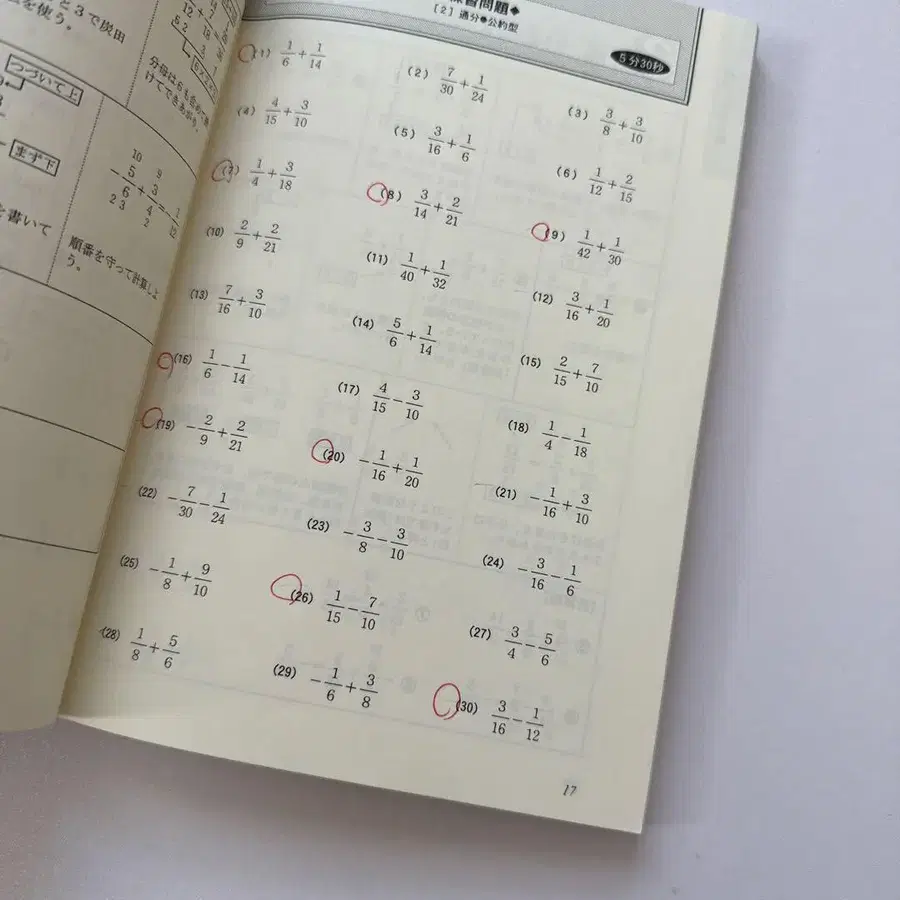 と3で炭田
を使う。
つづいて上
まず下
を書いて
分母はらも含めて
けてできあがり。
10 9
-5/6+3/4=1/12
2 3 2
順番を守って計算しよ
う。
練習問題◆
[2] 通分●公約型
5分30秒
(1) 1/6+1/14
(2) 7/30+1/24
(3) 3/8+3/10
(4) 4/15+3/10
(5) 3/16+1/6
(6) 1/12+2/15
(7) 1/4+3/18
(8) 3/14+2/21
(9) 1/42+1/30
(10) 2/9+2/21
(11) 1/40+1/32
(12) 3/16+1/20
(13) 7/16+3/10
(14) 5/6+1/14
(15) 2/15+7/10
(16) 1/6-1/14
(17) 4/15-3/10
(18) 1/4-1/18
(19) -2/9+2/21
(20) -1/16+1/20
(21) -1/16+3/10
(22) -7/30-1/24
(23) -3/8-3/10
(24) -3/16-1/6
(25) -1/8+9/10
(26) 1/15-7/10
(27) 3/4-5/6
(28) 1/8+5/6
(29) -1/6+3/8
(30) 3/16-1/12
17